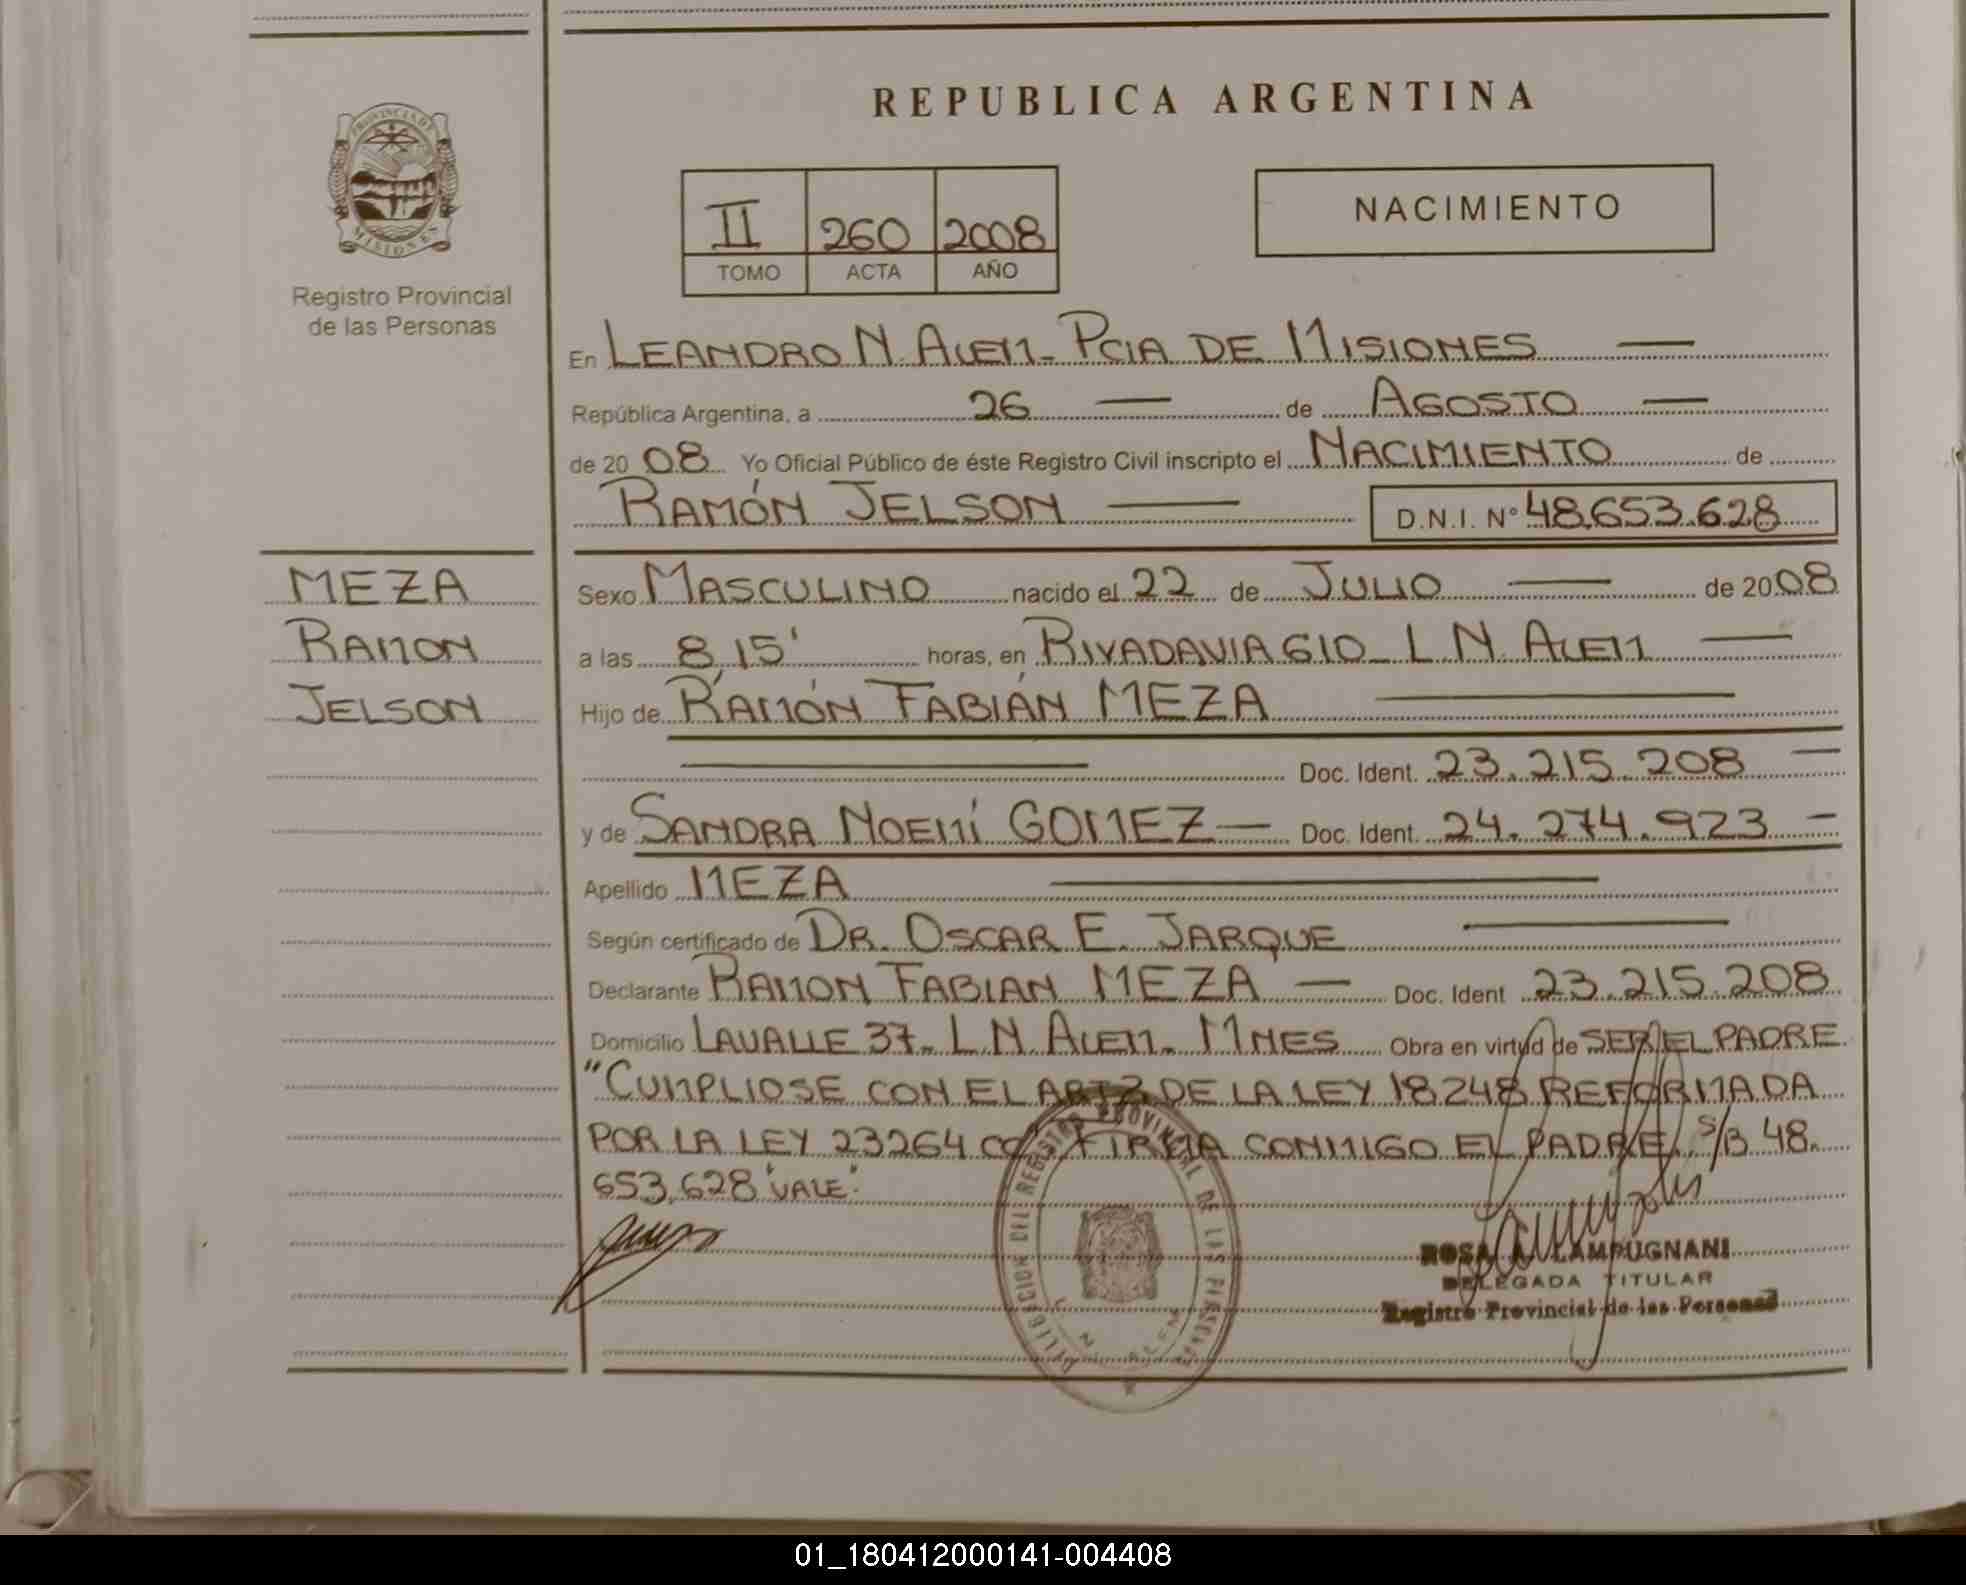 REPUBLICA ARGENTINA
PROVINCIA DE
MISIONES
Registro Provincial
de las Personas
II 260 2008
TOMO ACTA AÑO
NACIMIENTO
En LEANDRO N. ALEM - PCIA DE MISIONES
República Argentina, a 26 de AGOSTO
de 2008 Yo Oficial Público de éste Registro Civil inscripto el NACIMIENTO de
RAMÓN JELSON D.N.I. N° 48.653.628
MEZA
RAMON
JELSON
Sexo MASCULINO nacido el 22 de JULIO de 2008
a las 8,15' horas, en RIVADAVIA 610 - L. N. ALEM
Hijo de RAMÓN FABIÁN MEZA
Doc. Ident. 23.215.208
y de SANDRA NOEMÍ GOMEZ - Doc. Ident. 24.274.923
Apellido MEZA
Según certificado de DR. OSCAR E. JARQUE
Declarante RAMON FABIAN MEZA - Doc. Ident 23.215.208
Domicilio LAVALLE 37 - L.N. ALEM - MNES Obra en virtud de SER EL PADRE
"CUMPLIOSE CON EL ART 2 DE LA LEY 18248 REFORMADA
POR LA LEY 23264 FIRMA CONMIGO EL PADRE. S/B 48.
653.628 "VALE".
DELEGACION DEL REGISTRO PROVINCIAL DE LAS PERSONAS
L. N. ALEM
ROSA LAMPUGNANI
DELEGADA TITULAR
Registro Provincial de las Personas
01_180412000141-004408